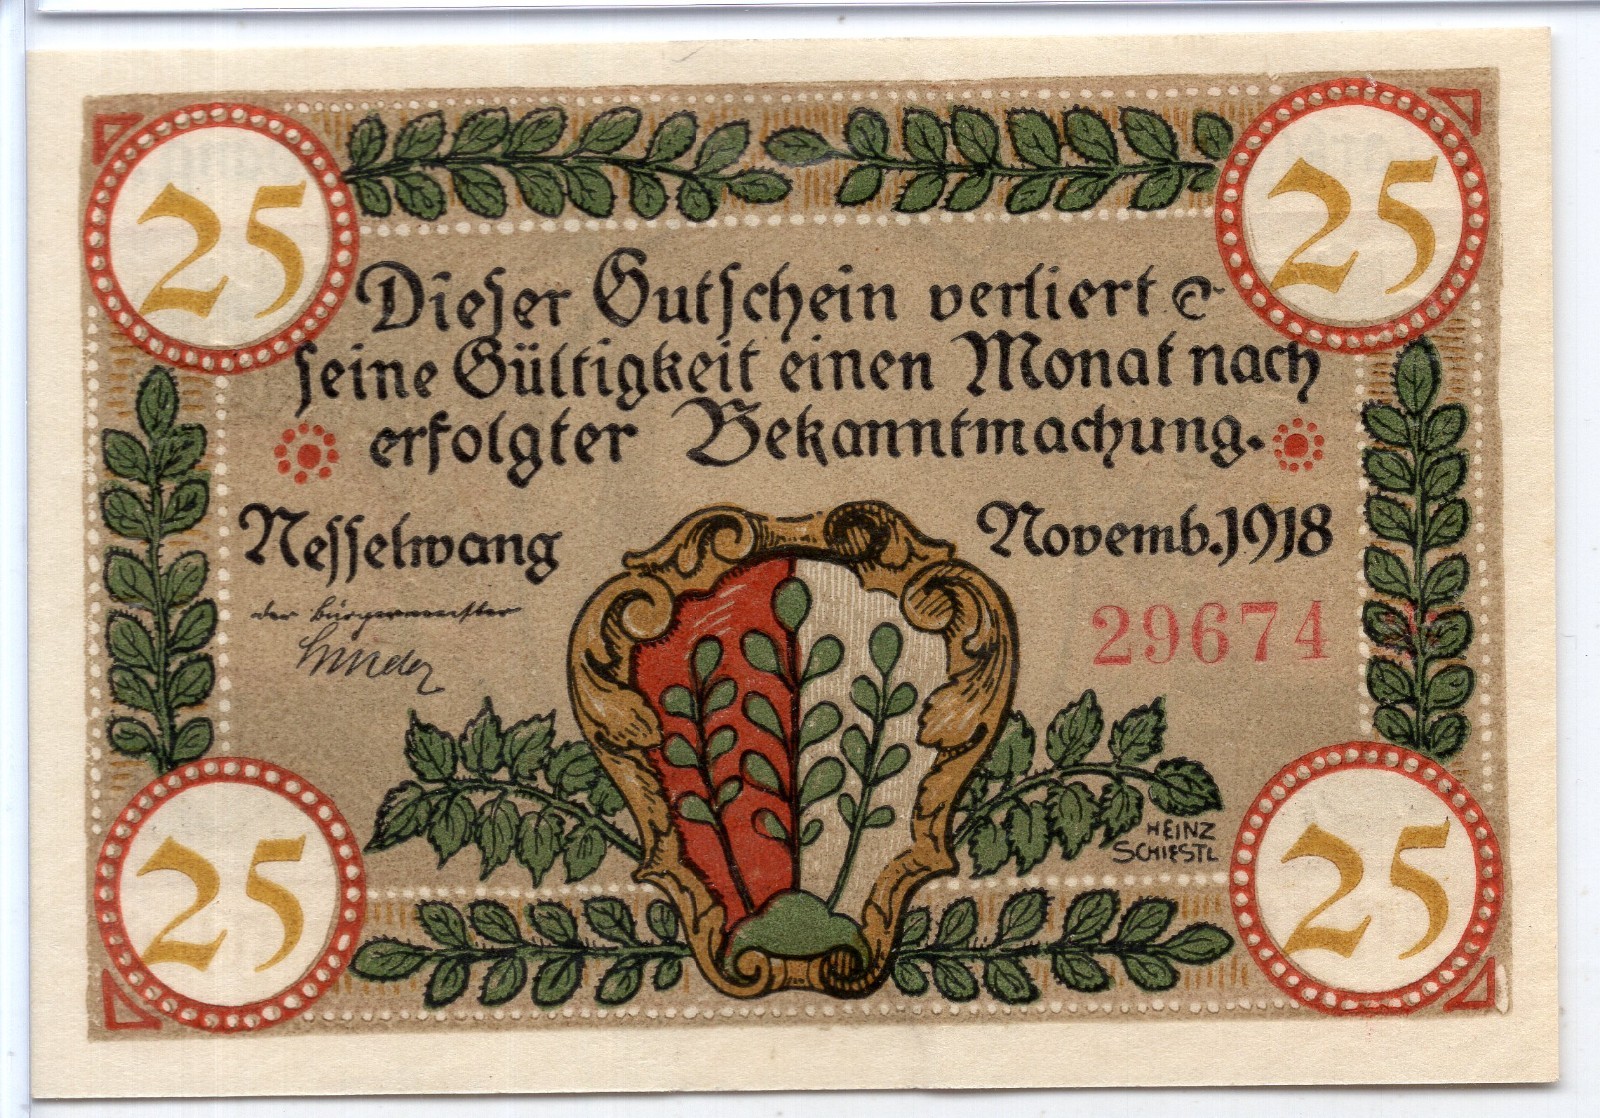 25 25
Dieser Gutschein verliert
seine Gültigkeit einen Monat nach
erfolgter Bekanntmachung.
Nesselwang Novemb. 1918
der Bürgermeister
29674
HEINZ
SCHIESTL
25 25